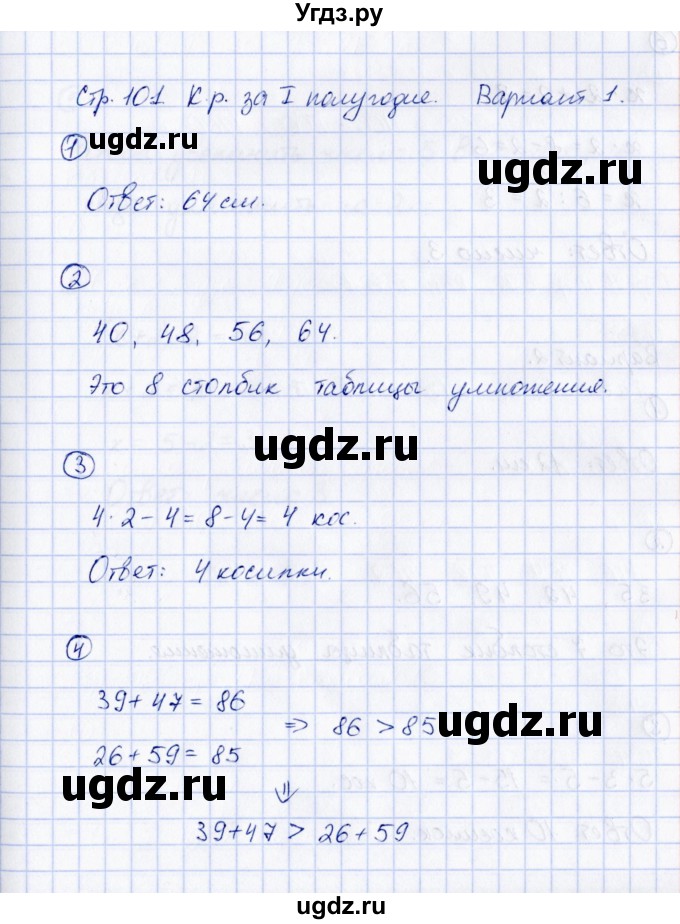 Угдз.ру
Стр. 101. К.р. за I полугодие. Вариант 1.
1
ugdz.ru
ugdz.ru
Ответ: 64 см.
2
40, 48, 56, 64.
Это 8 столбик таблицы умножения.
ugdz.ru
3
4·2-4=8-4=4 кос.
Ответ: 4 косынки.
4
39+47=86
⇒ 86 > 85
ugdz.ru
26+59=85
ugdz.ru
⇓
39+47 > 26+59
ugdz.ru